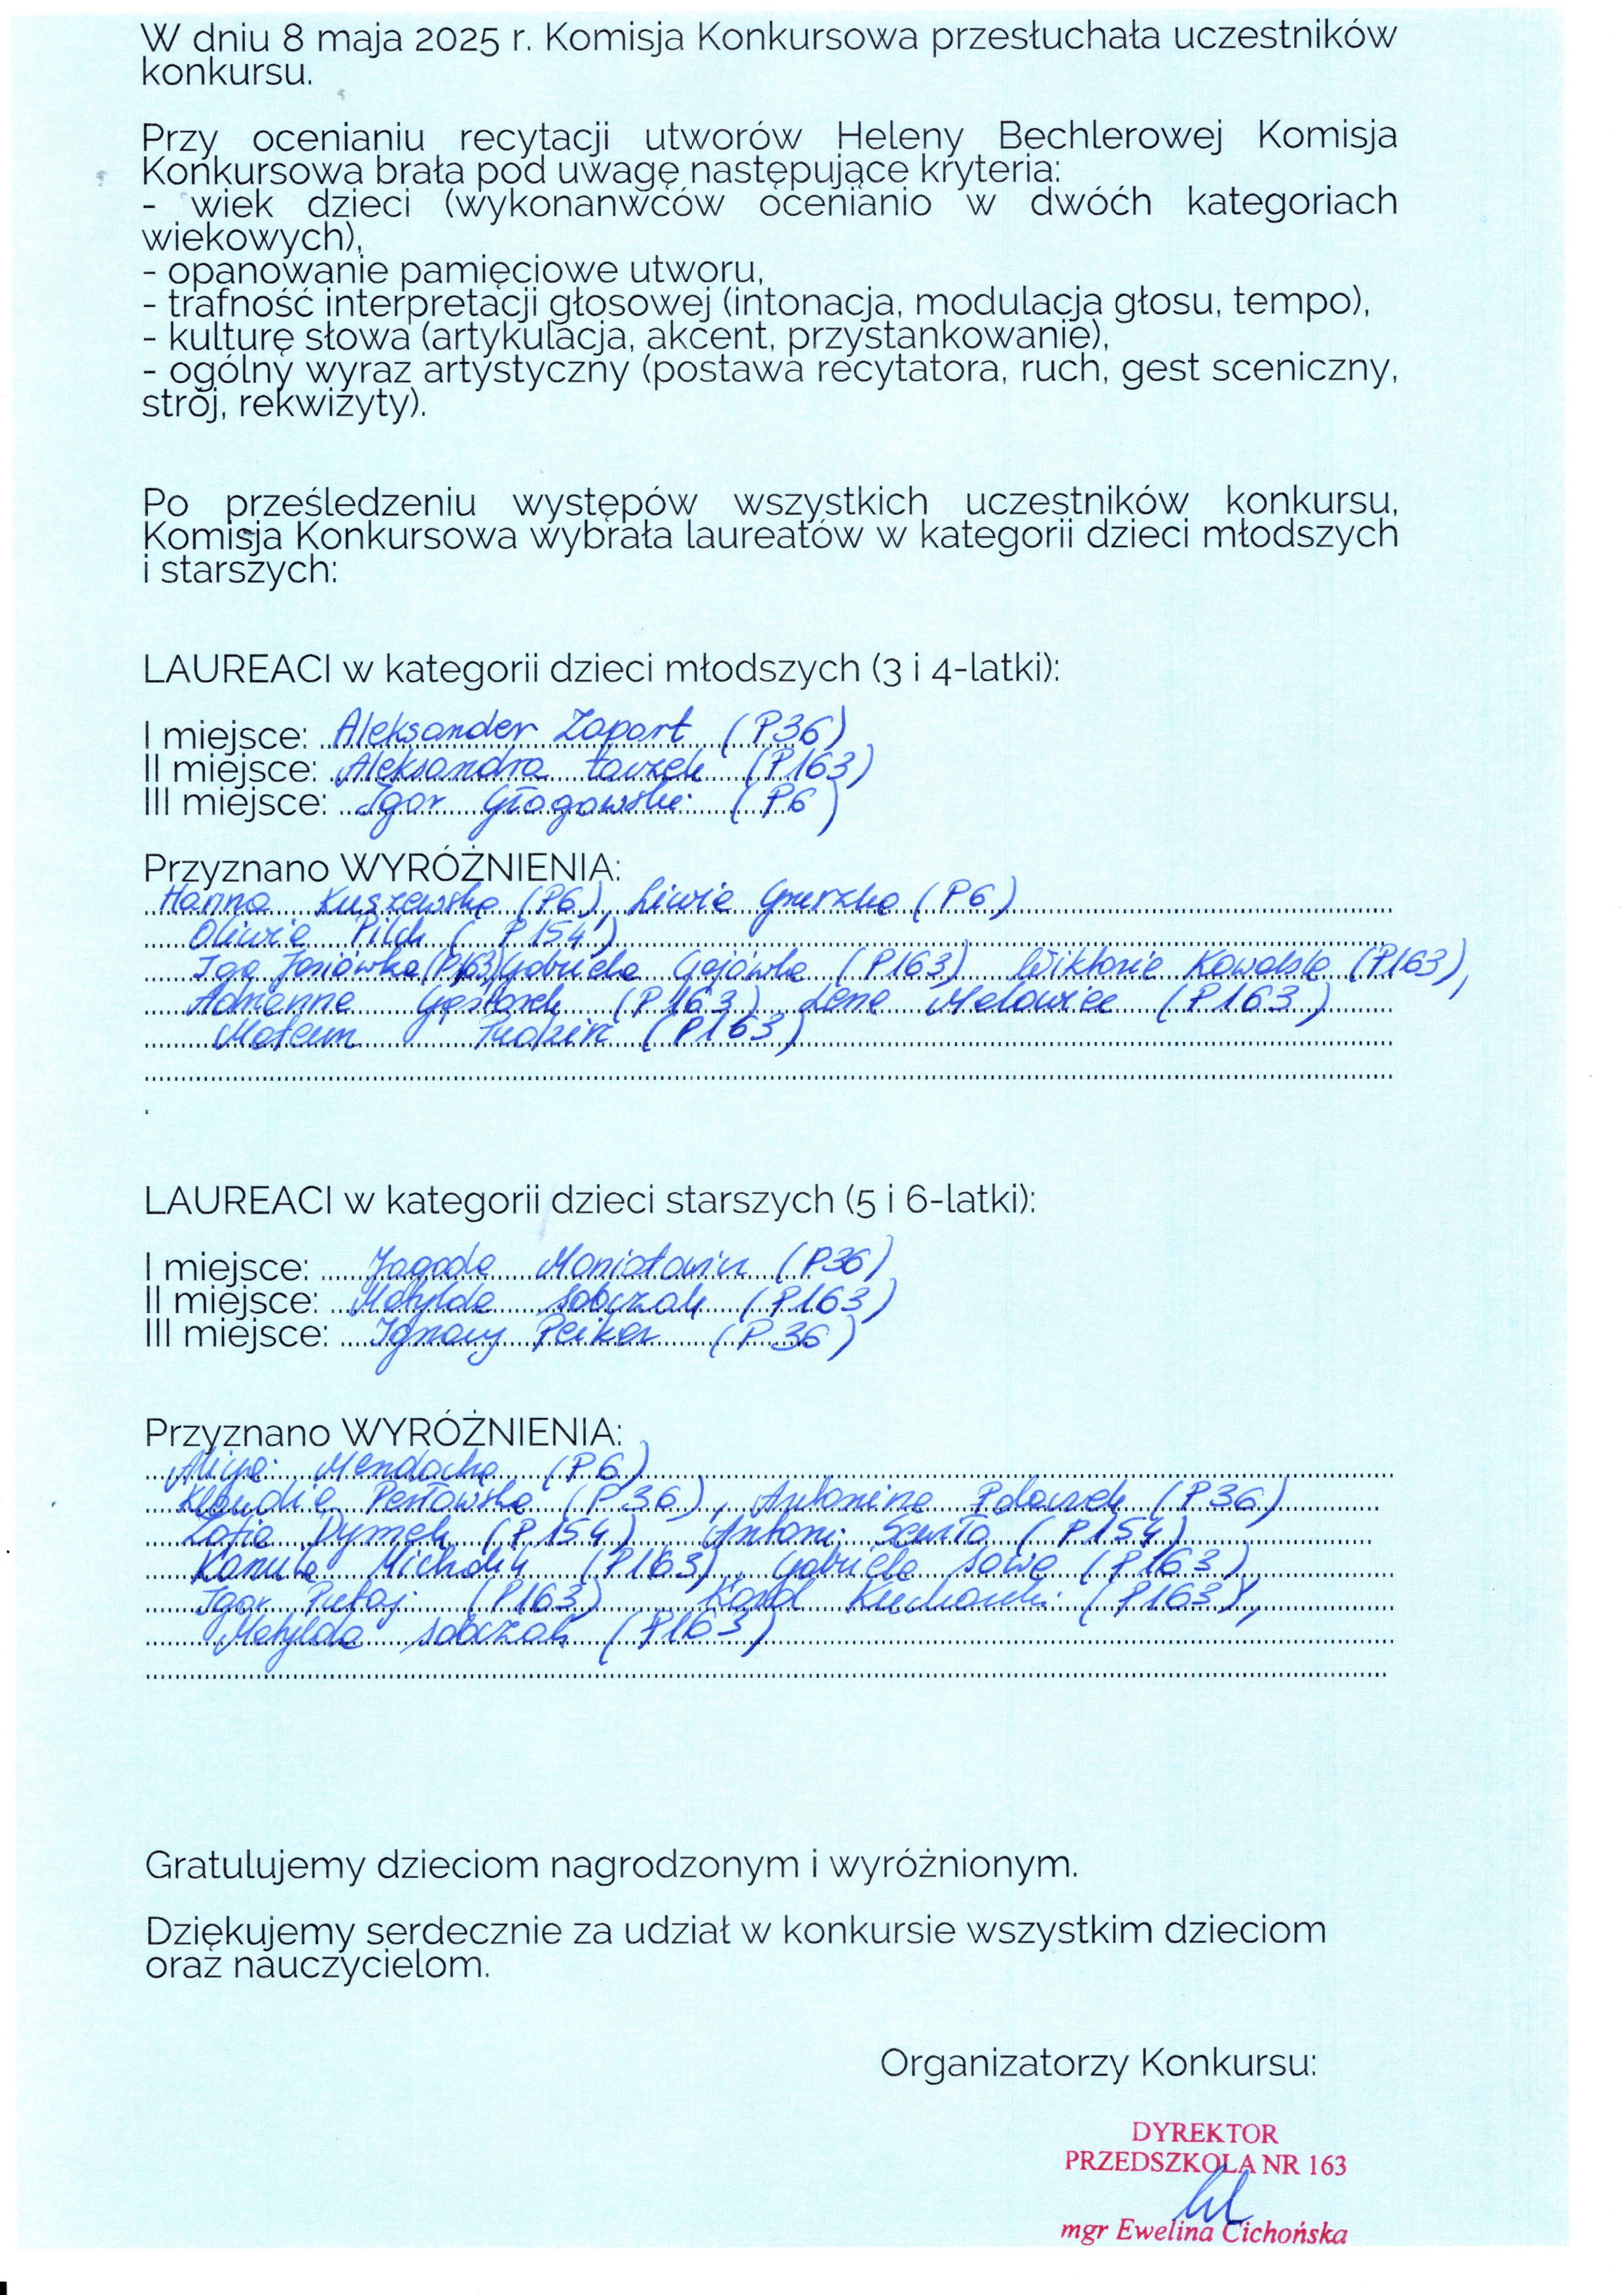 W dniu 8 maja 2025 r. Komisja Konkursowa przesłuchała uczestników
konkursu.
Przy ocenianiu recytacji utworów Heleny Bechlerowej Komisja
Konkursowa brała pod uwagę następujące kryteria:
- wiek dzieci (wykonanwców ocenianio w dwóch kategoriach
wiekowych),
- opanowanie pamięciowe utworu,
- trafność interpretacji głosowej (intonacja, modulacja głosu, tempo),
- kulturę słowa (artykulacja, akcent, przystankowanie),
- ogólny wyraz artystyczny (postawa recytatora, ruch, gest sceniczny,
strój, rekwizyty).
Po prześledzeniu występów wszystkich uczestników konkursu,
Komisja Konkursowa wybrała laureatów w kategorii dzieci młodszych
i starszych:
LAUREACI w kategorii dzieci młodszych (3 i 4-latki):
I miejsce: Aleksander Zaport (P36)
II miejsce: Aleksandra (P163)
III miejsce: Igor Głogowski (P6)
Przyznano WYRÓŻNIENIA:
Hanna Kuszewska (P6), Liwia (P6)
Oliwia Pilch (P154)
Iga (P163) Gabriela Gajówka (P163) Wiktoria Kowalska (P163),
Adrianna (P163) Lena (P163)
(P163)
LAUREACI w kategorii dzieci starszych (5 i 6-latki):
I miejsce: Jagoda (P36)
II miejsce: Matylda Sobczak (P163)
III miejsce: Ignacy Peiker (P36)
Przyznano WYRÓŻNIENIA:
Alicja Mendocha (P6)
Klaudia Perłowska (P36), Antonina Polaczek (P36)
Zofia Dymek (P154) Antoni (P154)
(P163), Gabriela Sowa (P163)
Igor (P163) Karol Kucharski (P163),
Matylda Sobczak (P163)
Gratulujemy dzieciom nagrodzonym i wyróżnionym.
Dziękujemy serdecznie za udział w konkursie wszystkim dzieciom
oraz nauczycielom.
Organizatorzy Konkursu:
DYREKTOR
PRZEDSZKOLA NR 163
mgr Ewelina Cichońska